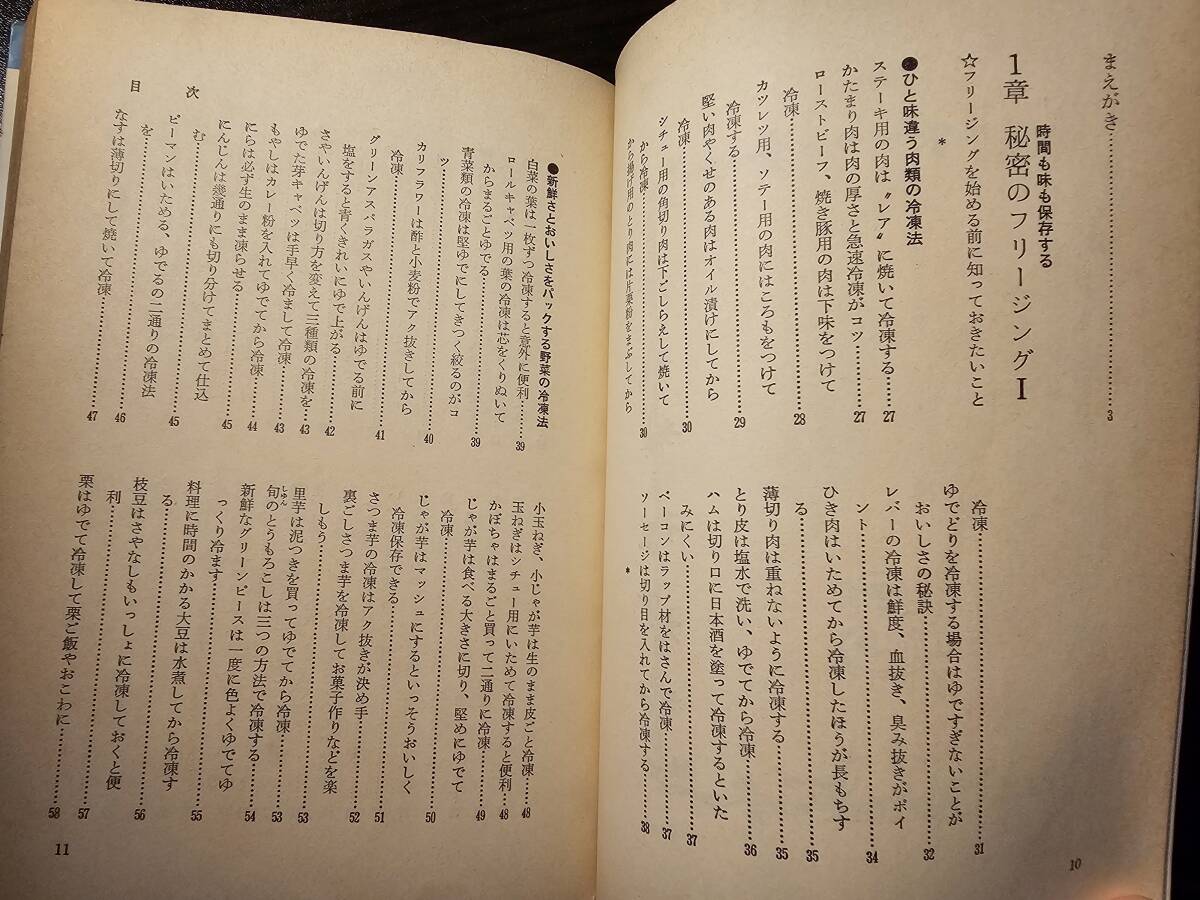 まえがき…………3
時間も味も保存する
1章 秘密のフリージングⅠ
☆フリージングを始める前に知っておきたいこと
*
●ひと味違う肉類の冷凍法
ステーキ用の肉は〝レア〟に焼いて冷凍する……27
かたまり肉は肉の厚さと急速冷凍がコツ……27
ローストビーフ、焼き豚用の肉は下味をつけて
冷凍……28
カツレツ用、ソテー用の肉にはころもをつけて
冷凍する……29
堅い肉やくせのある肉はオイル漬けにしてから
冷凍……30
シチュー用の角切り肉は下ごしらえして焼いて
から冷凍……30
から揚げ用のとり肉には片栗粉をまぶしてから
冷凍……31
ゆでどりを冷凍する場合はゆですぎないことが
おいしさの秘訣……32
レバーの冷凍は鮮度、血抜き、臭み抜きがポイ
ント……34
ひき肉はいためてから冷凍したほうが長もちす
る……35
薄切り肉は重ねないように冷凍する……35
とり皮は塩水で洗い、ゆでてから冷凍……36
ハムは切り口に日本酒を塗って冷凍するといた
みにくい……37
ベーコンはラップ材をはさんで冷凍……37
ソーセージは切り目を入れてから冷凍する……38
*
10
●新鮮さとおいしさをパックする野菜の冷凍法
白菜の葉は一枚ずつ冷凍すると意外に便利……39
ロールキャベツ用の葉の冷凍は芯をくりぬいて
からまるごとゆでる……39
青菜類の冷凍は堅ゆでにしてきつく絞るのがコ
ツ……40
カリフラワーは酢と小麦粉でアク抜きしてから
冷凍……41
グリーンアスパラガスやいんげんはゆでる前に
塩をすると青くきれいにゆで上がる……42
さやいんげんは切り方を変えて三種類の冷凍を……43
ゆでた芽キャベツは手早く冷まして冷凍……43
もやしはカレー粉を入れてゆでてから冷凍……44
にらは必ず生のまま凍らせる……45
にんじんは幾通りにも切り分けてまとめて仕込
む……45
ピーマンはいためる、ゆでるの二通りの冷凍法
を……46
なすは薄切りにして焼いて冷凍……47
目次
小玉ねぎ、小じゃが芋は生のまま皮ごと冷凍……48
玉ねぎはシチュー用にいためて冷凍すると便利……48
かぼちゃはまるごと買って二通りに冷凍……49
じゃが芋は食べる大きさに切り、堅めにゆでて
冷凍……50
じゃが芋はマッシュにするといっそうおいしく
冷凍保存できる……51
さつま芋の冷凍はアク抜きが決め手……52
裏ごしさつま芋を冷凍してお菓子作りなどを楽
しもう……53
里芋は泥つきを買ってゆでてから冷凍……53
旬(しゅん)のとうもろこしは三つの方法で冷凍する……54
新鮮なグリーンピースは一度に色よくゆでてゆ
っくり冷ます……55
料理に時間のかかる大豆は水煮してから冷凍す
る……56
枝豆はさやなしもいっしょに冷凍しておくと便
利……57
栗はゆでて冷凍して栗ご飯やおこわに……58
11